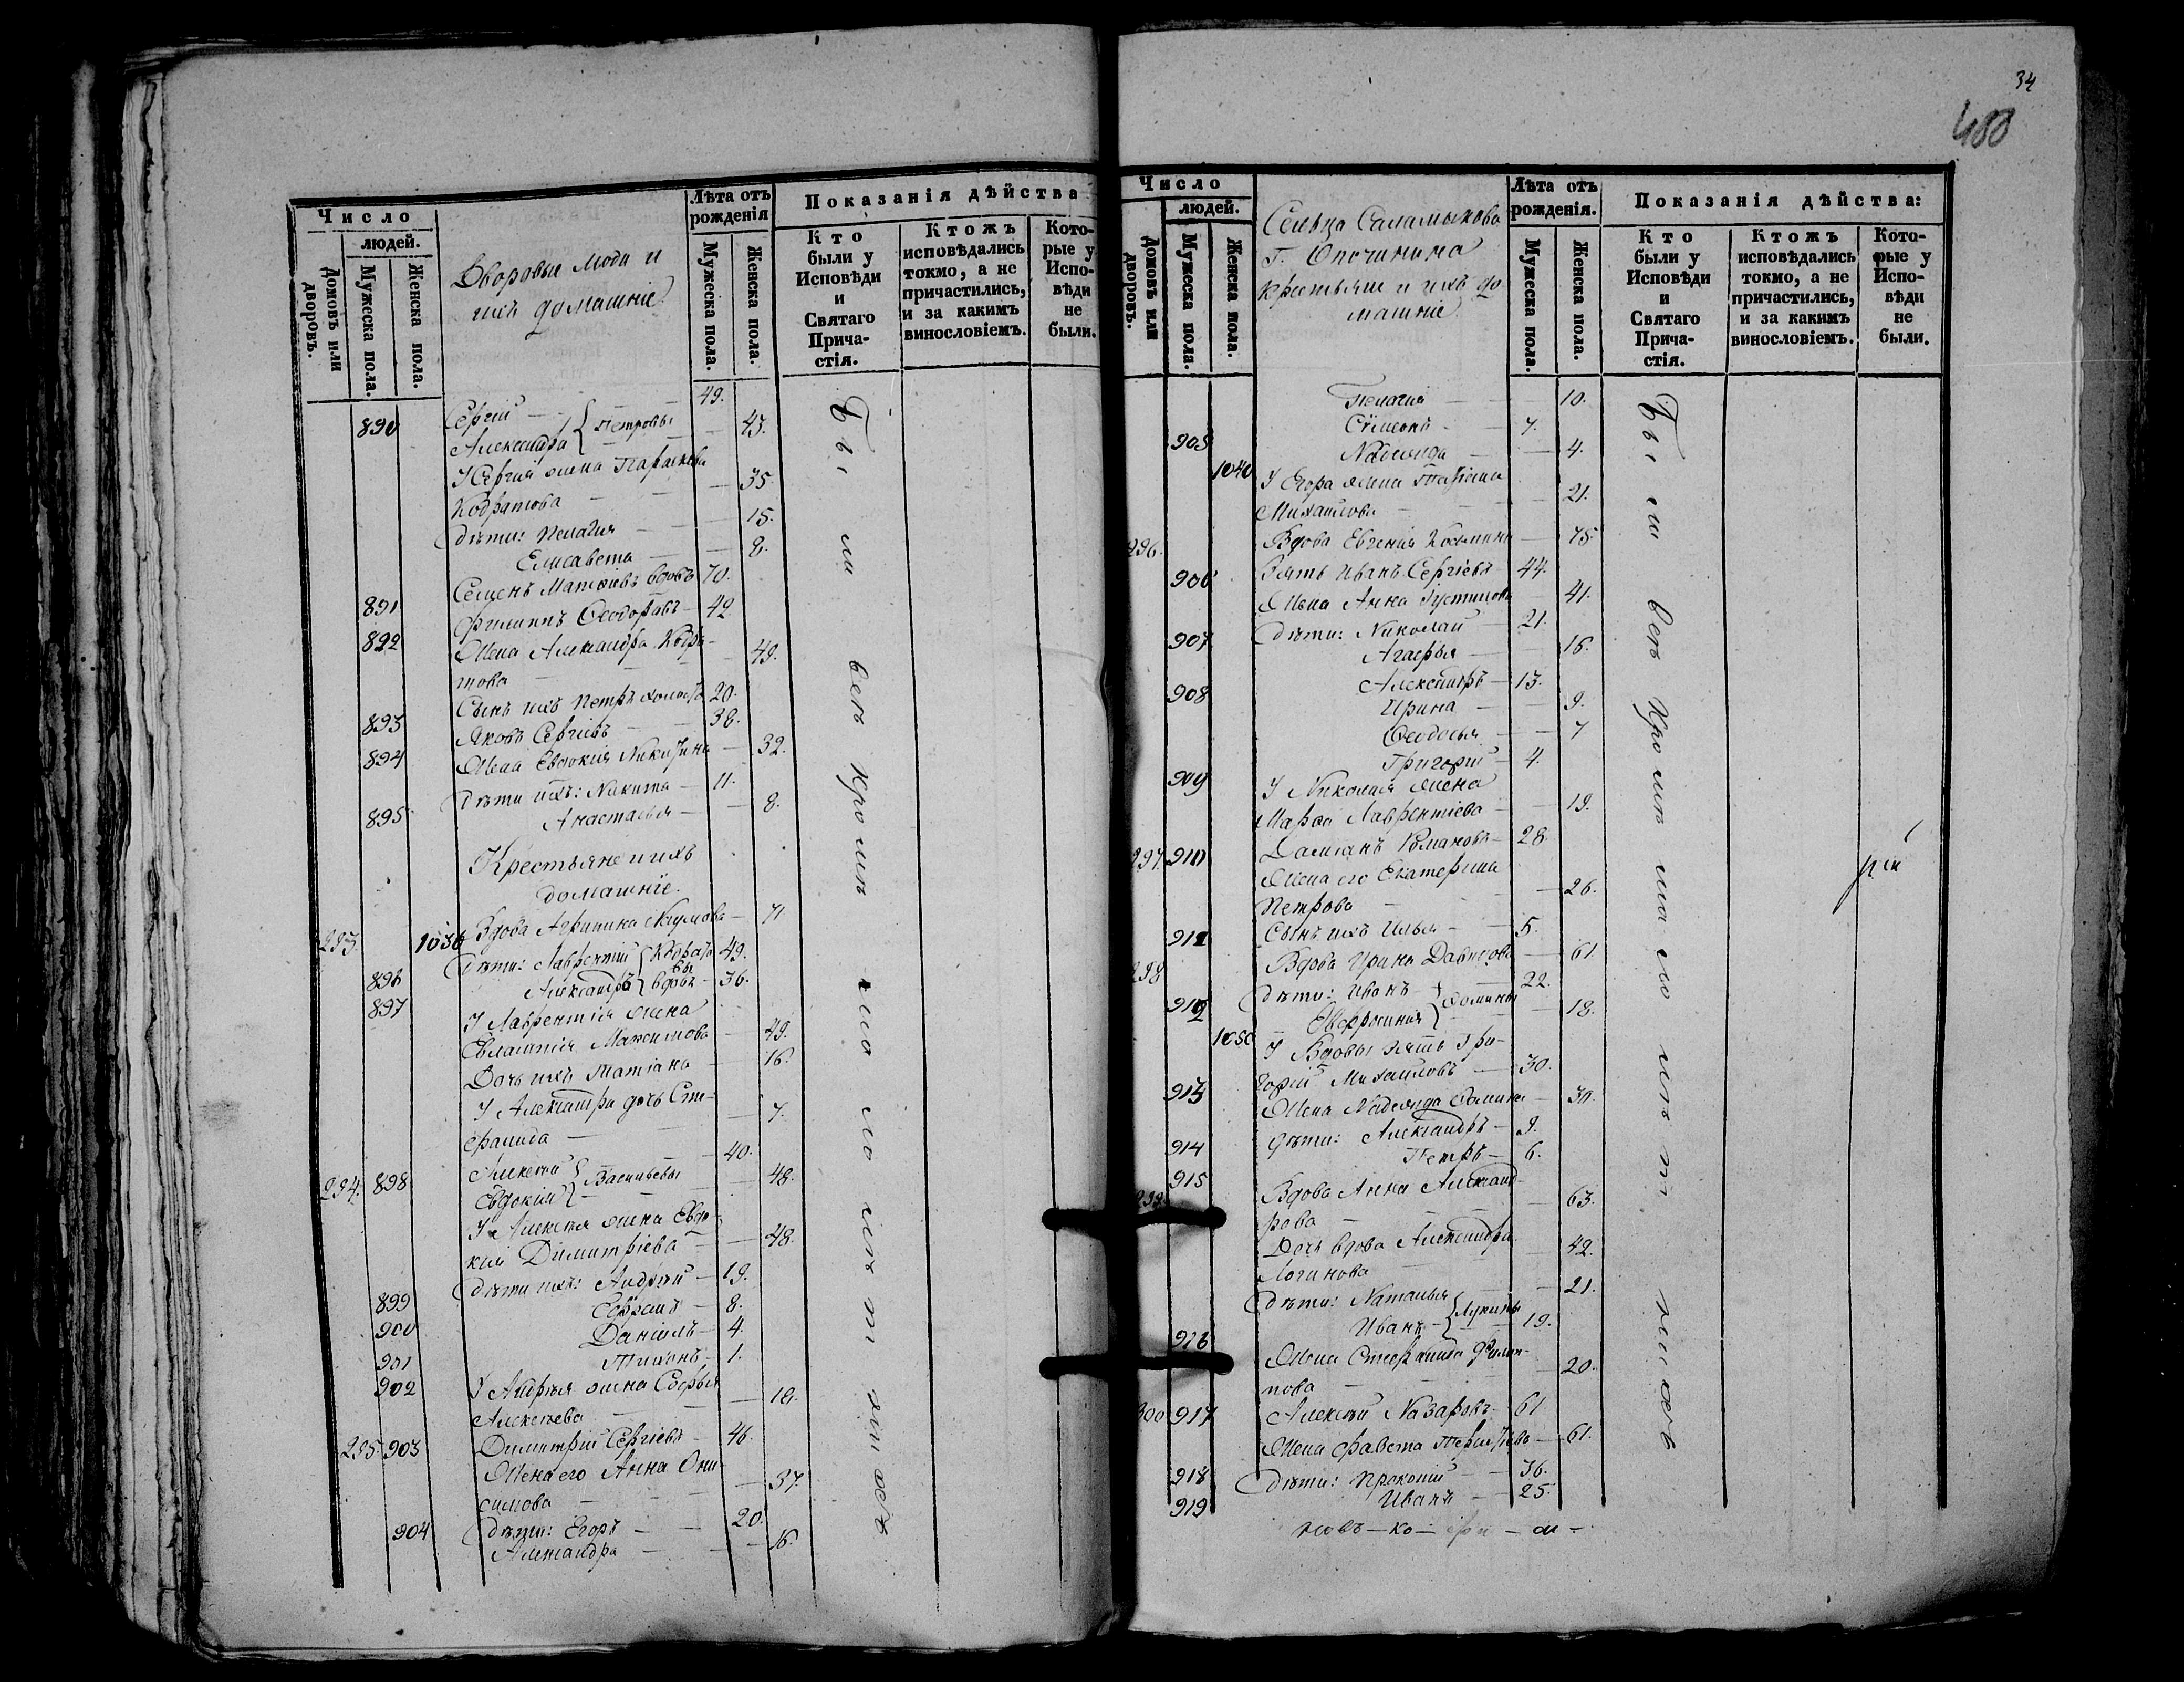 Число
людей.
Домовъ или дворовъ.
Мужеска пола.
Женска пола.
Дворовые люди и
ихъ домашніе.
Лѣта отъ
рожденія
Мужеска пола.
Женска пола.
Показанія дѣйства
Кто
были у
Исповѣди
и
Святаго
Прича-
стія.
Ктожъ
исповѣдались
токмо, а не
причастились,
и за какимъ
винословіемъ.
Кото-
рые у
Испо-
вѣди
не
были.
890 Сергій 49.
Александра Петровы 45.
У Сергія жена Параскева
Кодратова 35.
Дѣти: Пелагія 15.
Елисавета 8.
891 Семенъ Матвіевъ вдовъ 70.
892 Филиппъ Ѳеодоровъ 42.
Жена Александра Кодра-
това 49.
893 Сынъ ихъ Петръ холостъ 20.
894 Яковъ Сергіевъ 38.
Жена Евдокія Никитина 32.
895 Дѣти ихъ: Никита 11.
Анастасья 8.
Крестьяне и ихъ
домашніе.
293. 1036 Вдова Агрипина Наумова 71
896 Дѣти: Лаврентій Кодрато 49.
вы
897 Александръ вдовъ 36.
У Лаврентія жена
Евлампія Максимова 49.
Дочь ихъ Матіана 16.
У Александра дочь Сте-
фанида 7.
294. 898 Алексѣй 40.
Евдокія Васильевы 48.
У Алексѣя жена Евдо-
кія Димитріева 48.
899 Дѣти ихъ: Андрей 19.
900 Ефремъ 8.
901 Даніилъ 4.
902 Тихонъ 1.
У Андрея жена Софья
Алексѣева 18.
295 903 Димитрій Сергіевъ 46.
Жена его Анна Они-
симова 37.
904 Дѣти: Егоръ 20.
Александра 16.
Бы ли всѣ кромѣ мало лѣт нихъ
34
400
Число
людей.
Домовъ или дворовъ.
Мужеска пола.
Женска пола.
Сельца Саламыкова
Г. Опочинина
крестьяне и ихъ до
машніе.
Лѣта отъ
рожденія.
Мужеска пола.
Женска пола.
Показанія дѣйства:
Кто
были у
Исповѣди
и
Святаго
Прича-
стія.
Ктожъ
исповѣдались
токмо, а не
причастились,
и за какимъ
винословіемъ.
Кото-
рые у
Испо-
вѣди
не
были.
Пелагія 10.
905 Сѵмеонъ 7.
1040 Надежда 4.
У Егора жена Татіана
Михайлова 21.
296. Вдова Евгенія Козьмина 75
906 Зять Иванъ Сергіевъ 44.
Жена Анна Іустинова 41.
907 Дѣти: Николай 21.
Агафья 16.
908 Александръ 13.
Ирина 9.
Ѳеодосья 7
909 Григорій 4.
У Николая жена
Марѳа Лаврентіева 19.
297. 910 Даміанъ Романовъ 28.
Жена его Екатерина
Петрова 26.
911 Сынъ ихъ Илья 5.
298 Вдова Ирина Давыдова 61
912 Дѣти: Иванъ 22.
1050 Евфросинія Ѳомины 18.
У Вдовы зять Гри-
913 горій Михайловъ 30.
Жена Надежда Ѳомина 30.
914 Дѣти: Александръ 9.
915 Петръ 6.
299. Вдова Анна Александ-
рова 63.
Дочь вдова Александра
Логинова 42.
Дѣти: Наталья 21.
916 Иванъ Лукины 19.
Жена Стефанида Филип-
пова 20.
300 917 Алексѣй Назаровъ 61
Жена Ѳавста Терентіева 61.
918 Дѣти: Прокопій 36.
919 Иванъ 25.
Бы ли всѣ кромѣ мало лѣт нихъ